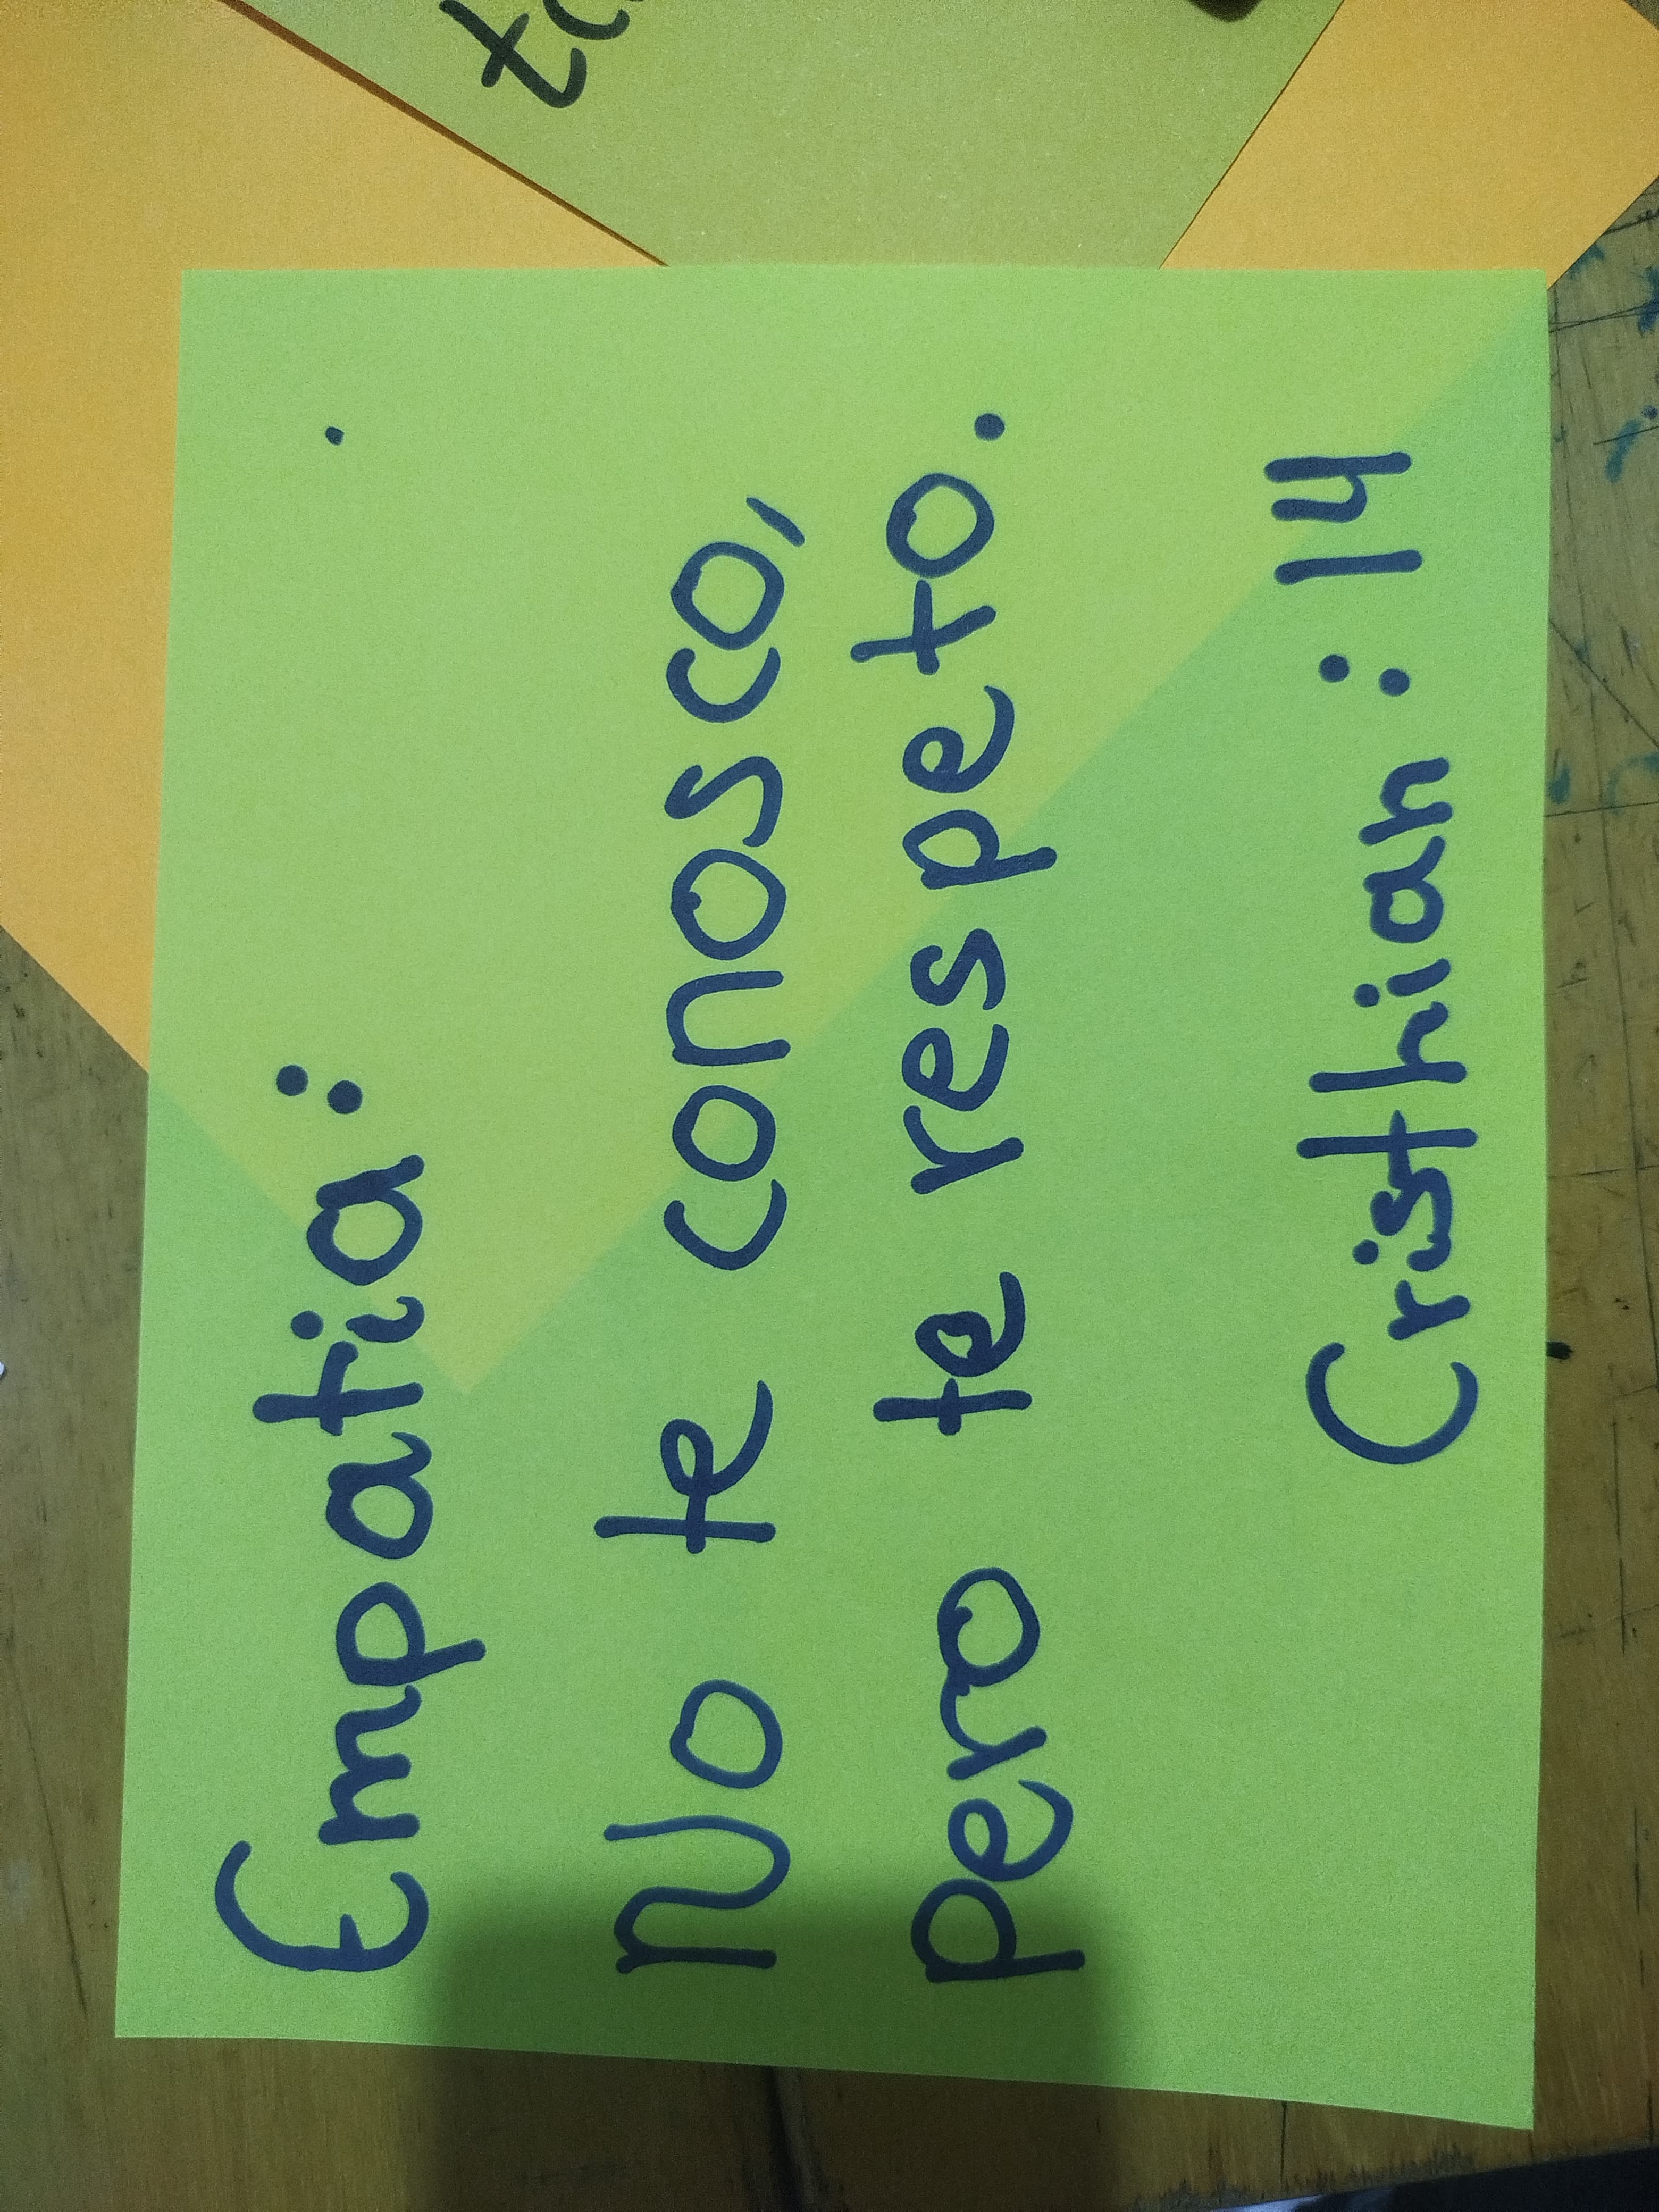 Empatia:
No te conosco,
pero te respeto.
Cristhian: 14